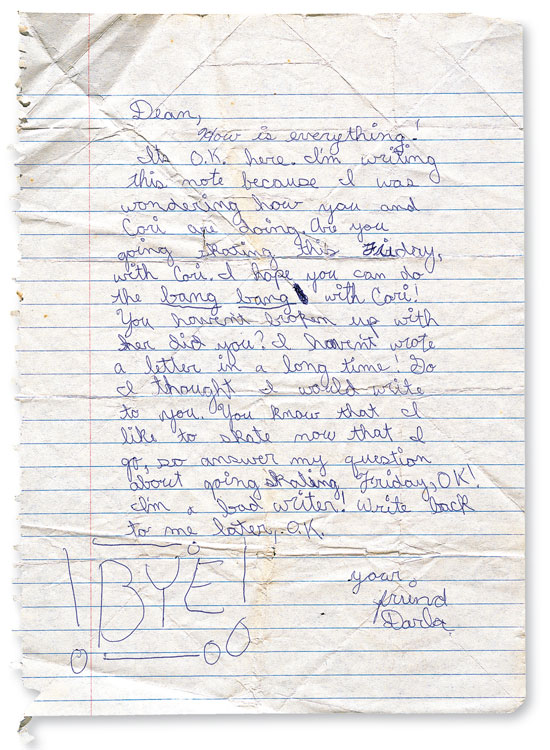 Dean,
How is everything!
Its O.K. here. I'm writing
this note because I was
wondering how you and
Cori are doing. Are you
going skating this Friday,
with Cori. I hope you can do
the bang bang with Cori!
You havent broken up with
her did you? I havent wrote
a letter in a long time! So
I thought I would write
to you. You know that I
like to skate now that I
go, so answer my question
about going skating Friday, OK!
I'm a bad writer! Write back
to me later, O.K.
BYE!
your
friind
Darla